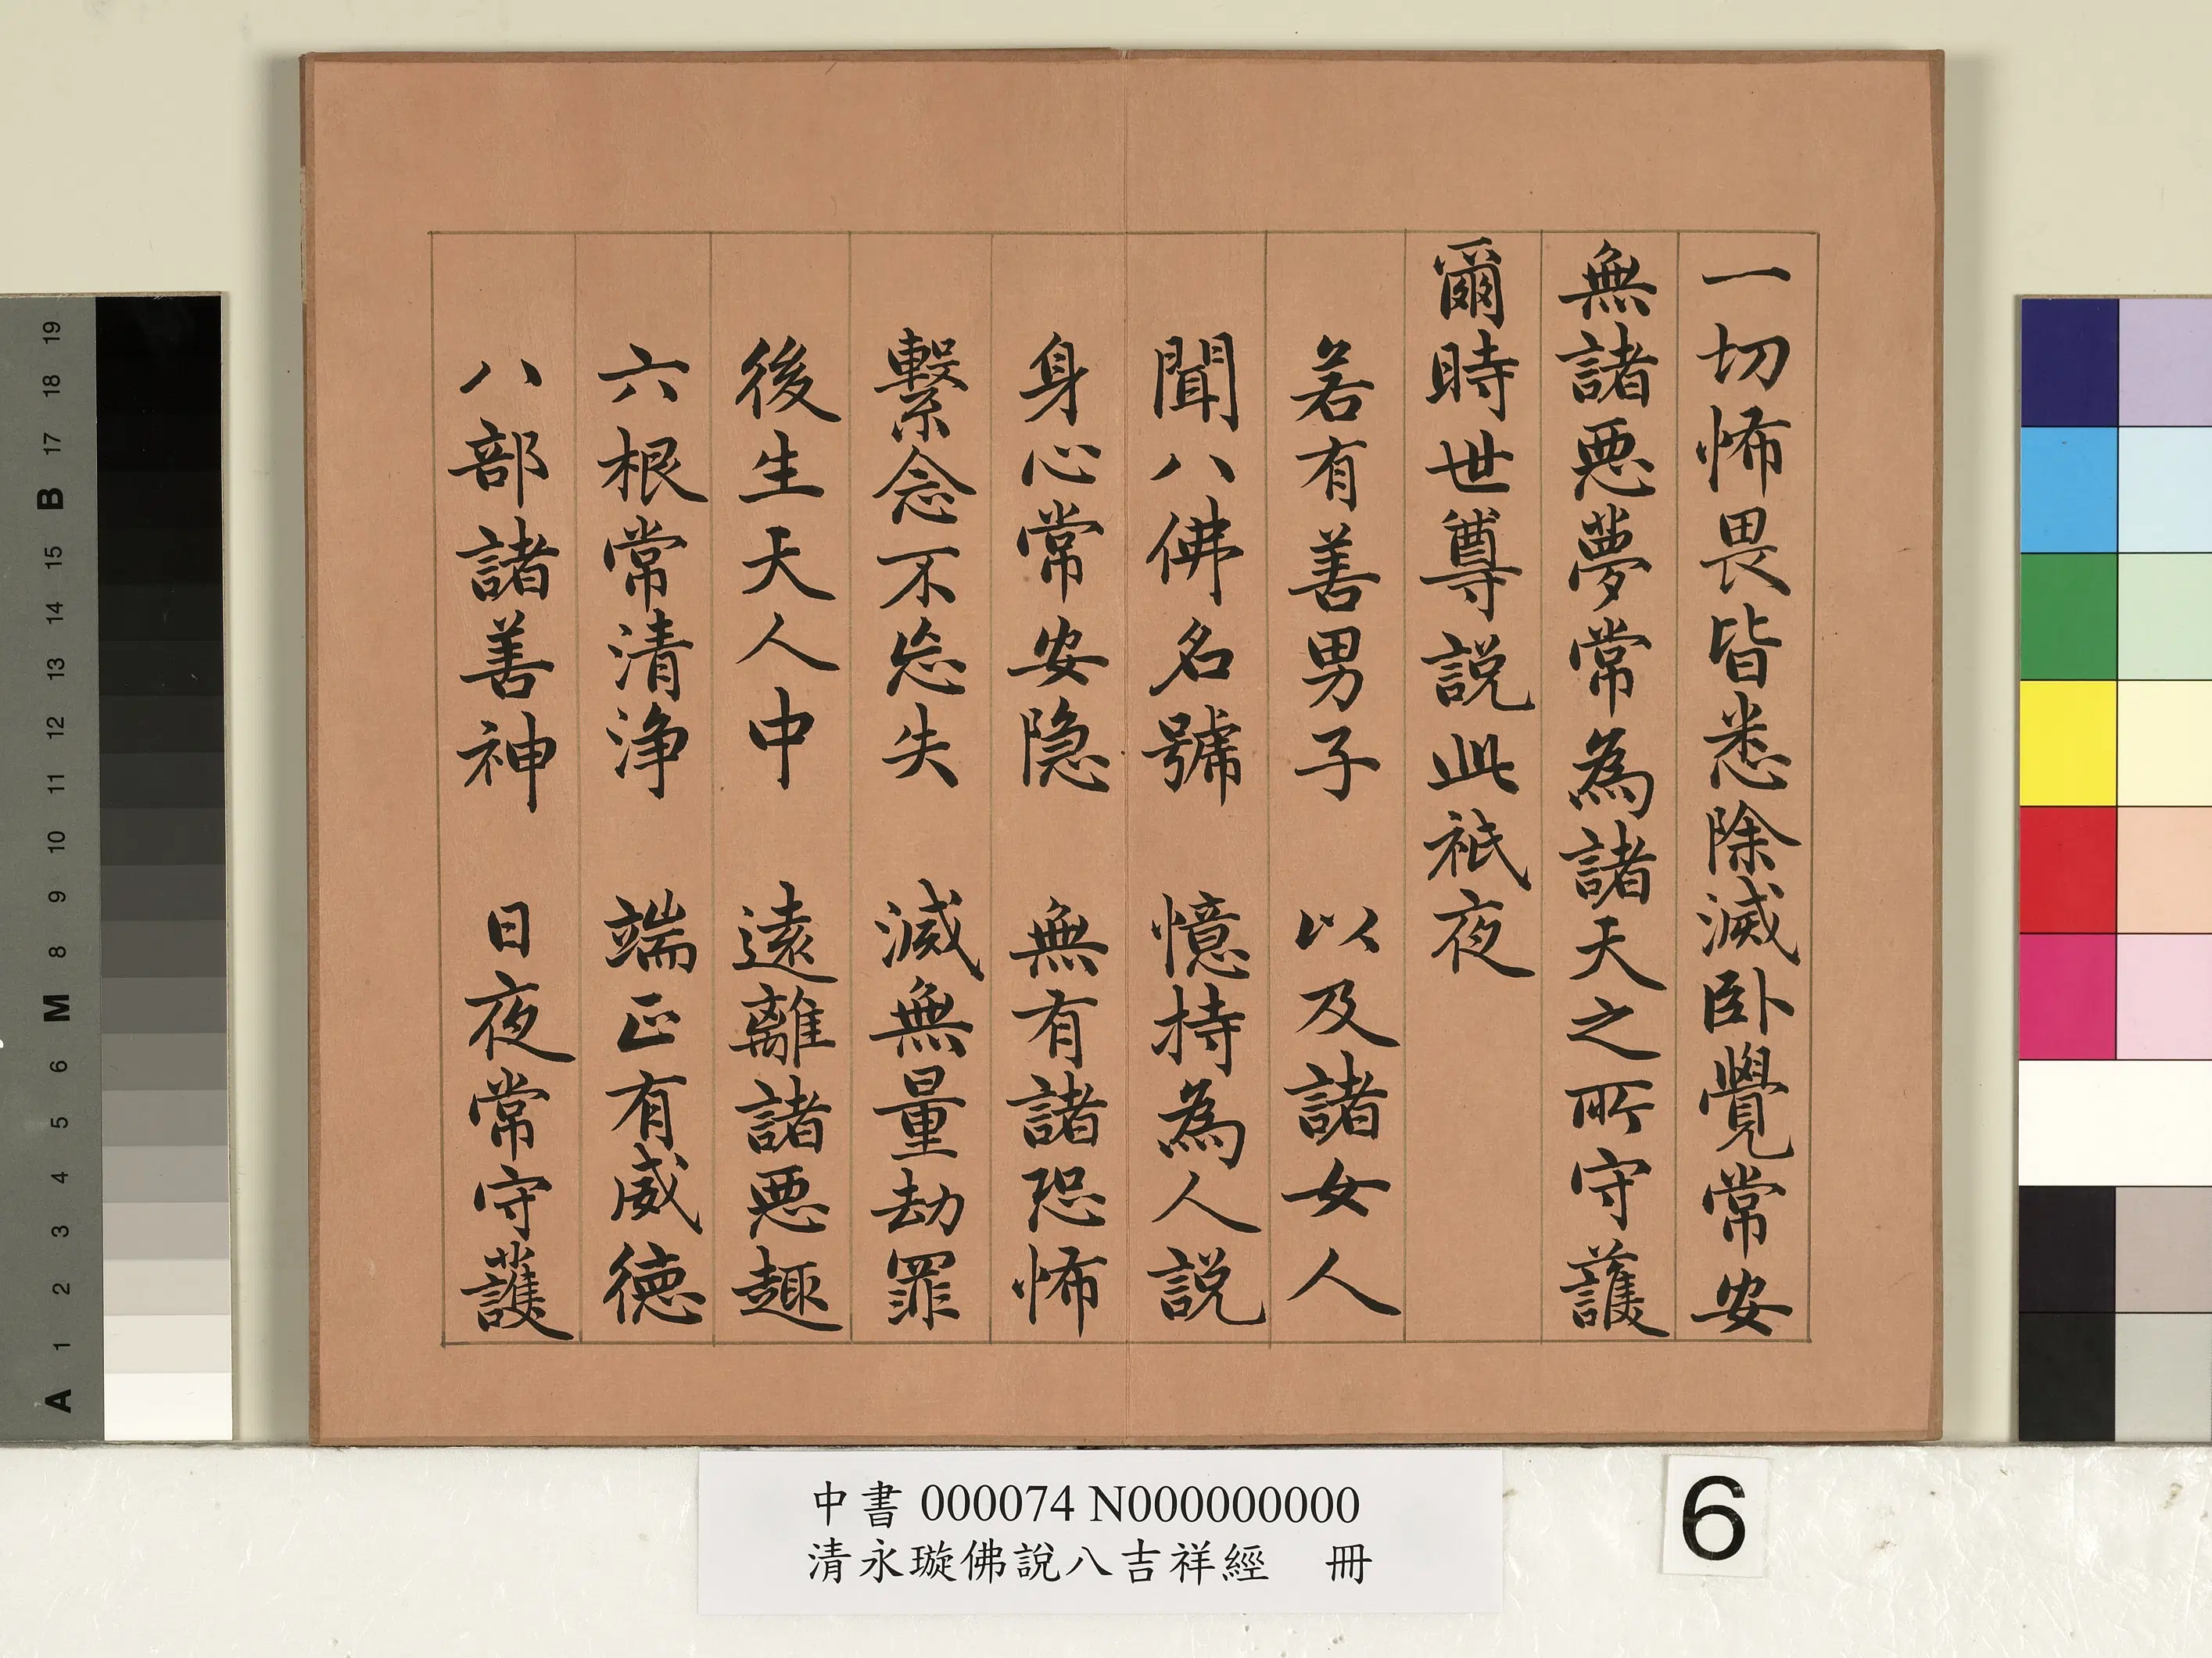 一切怖畏皆悉除滅卧覺常安
無諸惡夢常為諸天之所守護
爾時世尊說此祇夜
若有善男子　以及諸女人
聞八佛名號　憶持為人說
身心常安隐　無有諸恐怖
繫念不忘失　滅無量劫罪
後生天人中　遠離諸惡趣
六根常清淨　端正有威德
八部諸善神　日夜常守護
中書 000074 N000000000
清永璇佛說八吉祥經　冊
6
19
18
17
B
15
14
13
12
11
10
9
8
M
6
5
4
3
2
1
A